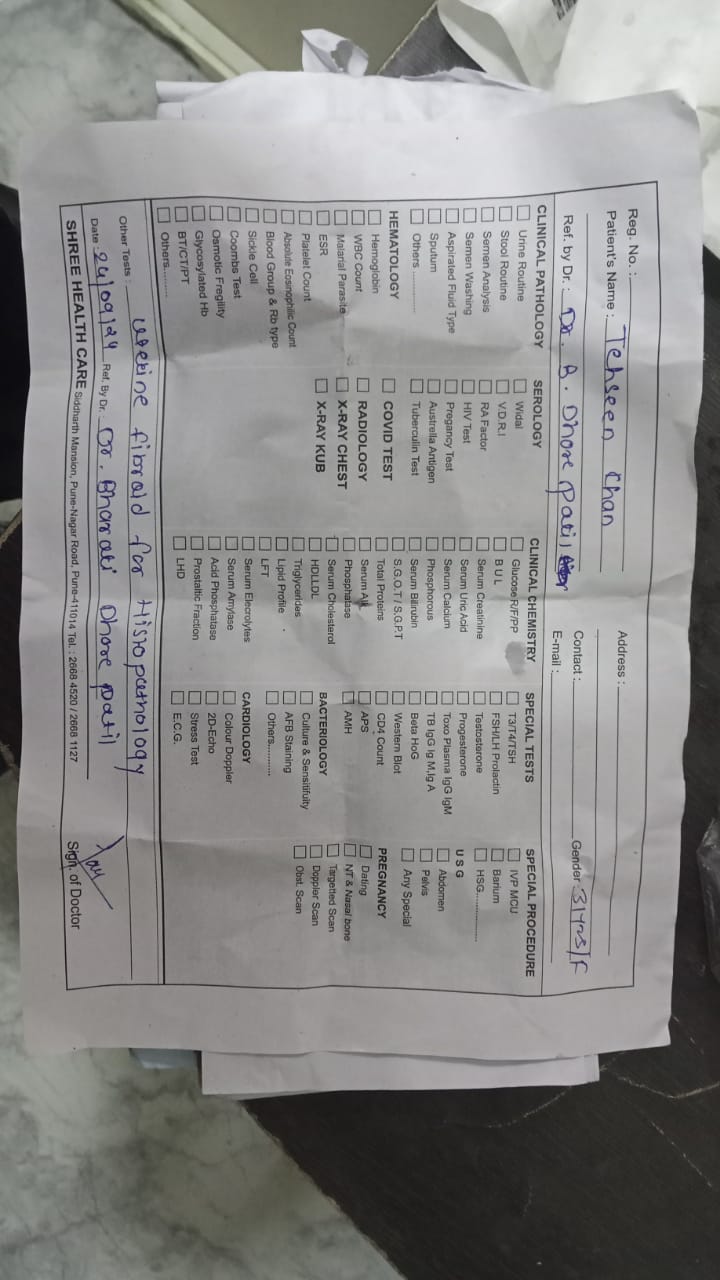 Reg. No. :
Patient's Name : Tehseen Chan
Address :
Ref. by Dr. : Dr. B. Dhore Patil
Contact : Gender 31yrs/F
E-mail :
CLINICAL PATHOLOGY
Urine Routine
Stool Routine
Semen Analysis
Semen Washing
Aspirated Fluid Type
Sputum
Others ............
HEMATOLOGY
Hemoglobin
WBC Count
Malarial Parasite
ESR
Platelet Count
Absolute Eosinophilic Count
Blood Group & Rb type
Sickle Cell
Coombs Test
Osmotic Fregility
Glycosylated Hb
BT/CT/PT
Others.........
SEROLOGY
Widal
V.D.R.I
RA Factor
HIV Test
Pregancy Test
Australia Antigen
Tuberculin Test
COVID TEST
RADIOLOGY
X-RAY CHEST
X-RAY KUB
CLINICAL CHEMISTRY
Glucose R/F/PP
B U L
Serum Crealinine
Serum Uric Acid
Serum Calcium
Phosphorous
Serum Bilirubin
S.G.O.T / S.G.P.T
Total Proteins
Serum Alk
Phosphatase
Serum Cholesterol
HDLLDL
Triglycerides
Lipid Profile
LFT
Serum Elecrolytes
Serum Amylase
Acid Phosphatase
Prostaltic Fraction
LHD
SPECIAL TESTS
T3/T4/TSH
FSH/LH Prolactin
Testosterone
Progesterone
Toxo Plasma IgG IgM
TB IgG Ig M,Ig A
Beta HoG
Western Blot
CD4 Count
APS
AMH
BACTERIOLOGY
Culture & Sensitifuity
AFB Staining
Others...........
CARDIOLOGY
Colour Doppler
2D-Echo
Stress Test
E.C.G.
SPECIAL PROCEDURE
IVP MCU
Barium
HSG................
U S G
Abdomen
Pelvis
Any Special
PREGNANCY
Dating
NT & Nasal bone
Targetted Scan
Doppler Scan
Obst. Scan
Other Tests : uterine fibroid for Histopathology
Date : 24/09/24 Ref. By Dr. : Dr. Bharati Dhore patil
Sign. of Doctor
SHREE HEALTH CARE Siddharth Mansion, Pune-Nagar Road, Pune-411014 Tel. : 2668 4520 / 2668 1127